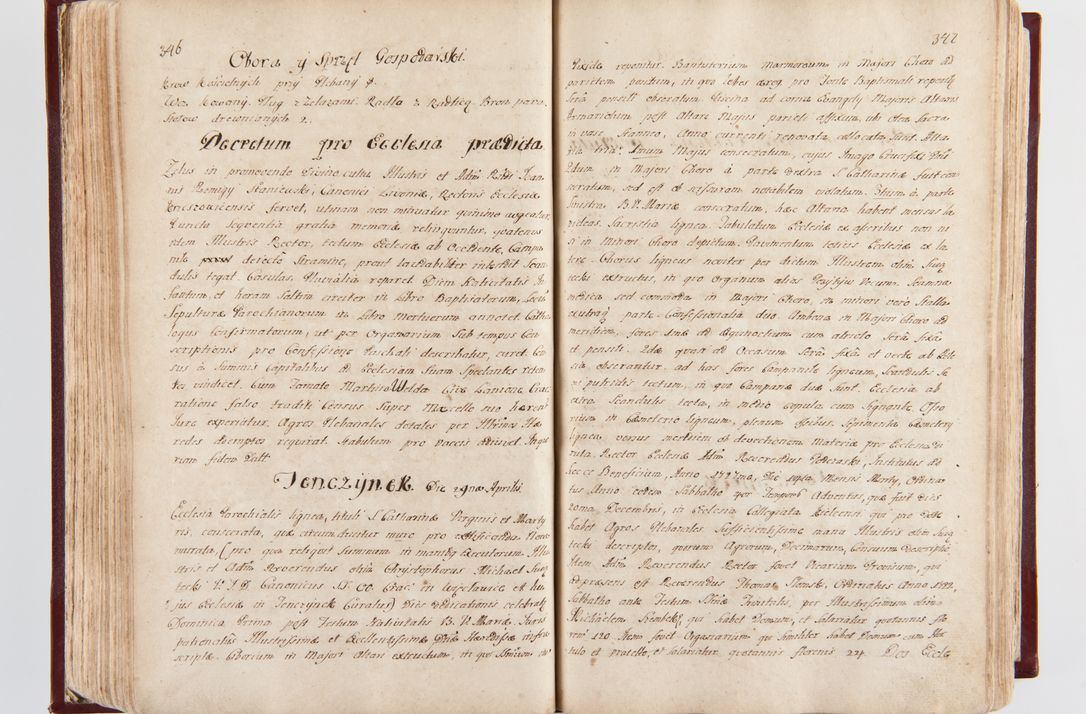 346
Obora y Sprzęt Gospodarski.
Krow Kościelnych przy Plebanij
Woz Kowany. Pług z Zelazami. Radła z Radlicą. Bron para.
drewnianych 2.
Decretum pro Ecclesia prædicta
Zelus in promovendo Divino cultu Illustris et Adm Rndi Joan
nis Canonici Livoniæ, Rectoris Ecclesiæ
fervet, utinam non minuatur quinimo augeatur
Puncta sequentia gratia memoriæ relinquuntur, quatenus
idem Illustris Rector, tectum Ecclesiæ ab Occidente, Campa
nile dejecto Stramine, prout laudabiliter intendit Scan
dulis tegat. Casulas, Pluvialia reparet. Diem Nativitatis In
fantium, et horam saltim circiter in Libro Baptisatorum, Locum
Sepulturæ Parochianorum in Libro Mortuorum annotet. Catha
logus Confirmatorum, ut per Organarium sub tempus Con
scriptionis pro Confessione Paschali describatur, curet. Cen
sus à Summis Capitalibus ad Ecclesiam Suam Spectantes reten
tos vindicet. Cum Famato Martino Welda Cive Lanione Crac.
ratione falso traditi Census super Macello suo hærent
Jure experiatur. Agros Plebanales dotales per Hæ
redes decerptos requirat. Stabulum pro vaccis ædificet. In quo
rum fidem Datt
Tenczÿnek. Die 29næ Aprilis.
Ecclesia Parochialis lignea, tituli S Catharinæ Virginis et Marty
ris, consecrata, quæ circumducitur muro pro Ecclesia Nova
murata, (pro qua reliquit Summam in manibus Executorum Illu
stris et Adm Reverendus olim Chrystophorus Michael
V. J. D. Canonicus Crac. in et hu
jus Ecclesiæ in Tenczynek Curatus) Dies dedicationis celebratur
Dominica Prima post Festum Nativitatis B. V. Mariæ. Juris
patronatus Illustrissimæ et Excellentissimæ Dnæ Hæredissæ infra
scriptæ. Ciborium in Majori Altari extructum, in quo
347
Pixide reponitur. Baptisterium marmoreum in Majori Choro ad
parietem positum, in quo lebes æreus pro Fonte Baptismali repositus
Sera pensili obseratum. Piscina ad cornu Evangely Majoris Altaris
Armariolum post Altare Majus parieti affixum, ubi Olea Sacra
in vase stanneo, Anno currenti renovata, collocata sunt. Alta
ria tria: 1mum Majus consecratum, cujus Imago Crucifixi Dni
2dum in Majori Choro à parte dextra S Catharinæ fuit con
secratum, sed est ob scissuram notabilem violatum. 3tium à parte
sinistra B. V. Mariæ consecratum, hæc Altaria habent mensas la
pideas. Sacristia lignea. Tabulatum Ecclesiæ ex asseribus non ni
si in Minori Choro depictum. Pavimentum totius Ecclesiæ ex la
tere. Chorus ligneus noviter per dictum Illustrem olim
extructus, in quo Organum alias Pozytyw Vocum
modica sed commoda in Majori Choro, in minori vero Stalla
ex utraque parte. Confessionalia duo. Ambona in Majori Choro ad
meridiem, fores unæ ad Aquilonem cum aliæ Sera fixa
et pensili. 2dæ quasi ad Occasum Sera fixa et vecte ab Eccle
sia obserantur. ad has fores Campanile ligneum, Scandulis Se
mi putridis tectum, in quo Campanæ duæ sunt. Ecclesia ab
extra Scandulis tecta, in medio copula cum Signante. Osso
rium in Cæmeterio ligneum, plenum ossibus. Sepimenta Cæmetery
lignea, versus meridiem ob devectionem Materiæ pro Ecclesia di
ruta. Rector Ecclesiæ Adm Reverendus Institutus ad
hocce Beneficium, Anno 1727mo, Die Mensis Marty, Ordina
tus Anno eodem Sabbatho quatuor Temporum Adventus, quæ fuit dies
20ma Decembris, in Ecclesia Collegiata Kielcensi qui pro Dote
habet Agros Plebanales Sufficientissime manu Illustris olim
descriptos, quorum Agrorum, Decimarum, Censuum descriptio
Idem Adm Reverendus Rector fovet Vicarium Provisum, qui
ad præsens est Reverendus Thomas Słomski, Ordinatus Anno
Sabbatho ante Festum SSmæ Trinitatis, per Illustrissimum olim
Michaelem Kunicki, qui habet Domum, et Salariatur quotannis flo
renis 120. Item fovet Organarium, qui similiter habet Domum cum Hor
tulo et pratello, et salariatur quotannis florenis 24. Dos Eccle